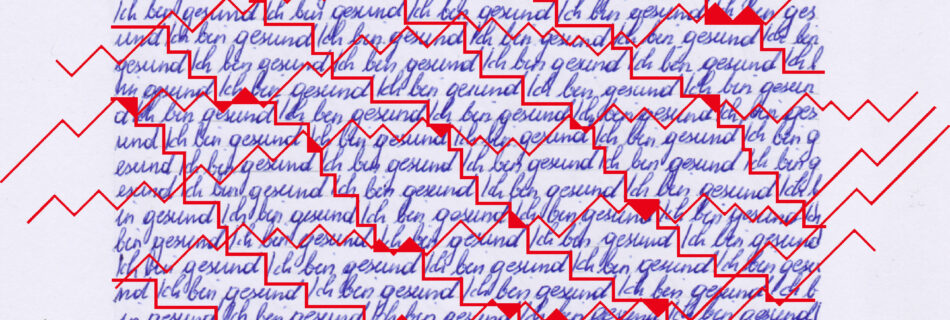 Ich bin gesund Ich bin gesund Ich bin gesund Ich bin gesund Ich bin ges
und Ich bin gesund Ich bin gesund Ich bin gesund Ich bin gesund Ich bin
gesund Ich bin gesund Ich bin gesund Ich bin gesund Ich bin gesund Ich b
bin gesund Ich bin gesund Ich bin gesund Ich bin gesund Ich bin gesun
d Ich bin gesund Ich bin gesund Ich bin gesund Ich bin gesund Ich bin ges
und Ich bin gesund Ich bin gesund Ich bin gesund Ich bin gesund Ich bin g
esund Ich bin gesund Ich bin gesund Ich bin gesund Ich bin gesund Ich bin g
esund Ich bin gesund Ich bin gesund Ich bin gesund Ich bin gesund Ich b
in gesund Ich bin gesund Ich bin gesund Ich bin gesund Ich bin gesund Ich
bin gesund Ich bin gesund Ich bin gesund Ich bin gesund Ich bin gesund
Ich bin gesund Ich bin gesund Ich bin gesund Ich bin gesund Ich bin gesu
nd Ich bin gesund Ich bin gesund Ich bin gesund Ich bin gesund Ich b
in gesund Ich bin gesund Ich bin gesund Ich bin gesund Ich bin gesund